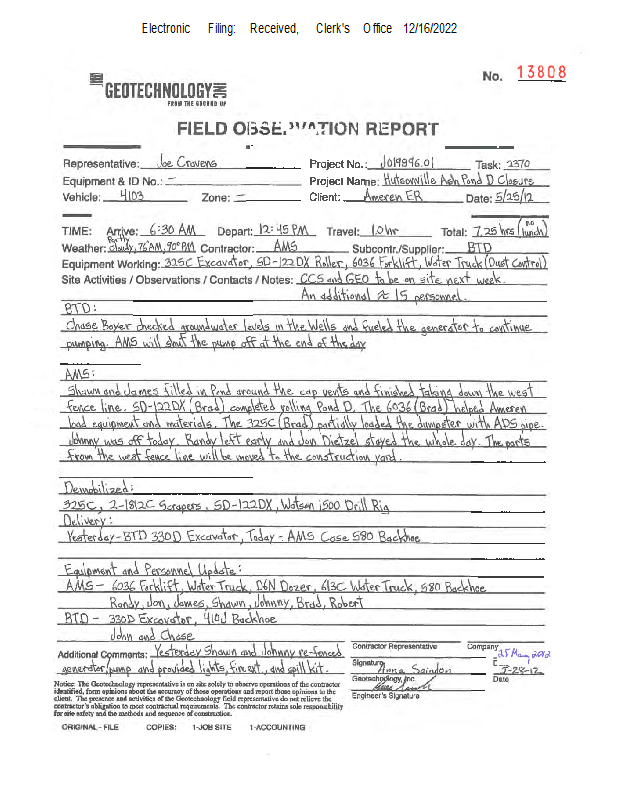 Electronic Filing: Received, Clerk's Office 12/16/2022
No. 13808
GEOTECHNOLOGY
FROM THE GROUND UP
FIELD OBSERVATION REPORT
Representative: Joe Cravens Project No.: J019896.01 Task: 2370
Equipment & ID No.: - Project Name: Hutsonville Ash Pond D Closure
Vehicle: 4103 Zone: - Client: Ameren ER Date: 5/25/12
TIME: Arrive: 6:30 AM Depart: 12:45 PM Travel: 1.0hr Total: 7.25 hrs (no lunch)
Weather: Partly Cloudy, 76°AM, 90°PM Contractor: AMS Subcontr./Supplier: BTD
Equipment Working: 325C Excavator, SD-122DX Roller, 6036 Forklift, Water Truck (Dust Control)
Site Activities / Observations / Contacts / Notes: CCS and GEO to be on site next week.
An additional ≈ 15 personnel.
BTD:
Chase Boyer checked groundwater levels in the Wells and fueled the generator to continue
pumping. AMS will shut the pump off at the end of the day
AMS:
Shawn and James filled in Pond around the cap vents and finished taking down the west
fence line. SD-122DX (Brad) completed rolling Pond D. The 6036 (Brad) helped Ameren
load equipment and materials. The 325C (Brad) partially loaded the dumpster with ADS pipe.
Johnny was off today. Randy left early and Jon Dietzel stayed the whole day. The parts
from the west fence line will be moved to the construction yard.
Demobilized:
325C, 2-1812C Scrapers, SD-122DX, Watson 1500 Drill Rig
Delivery:
Yesterday-BTD 330D Excavator, Today - AMS Case 580 Backhoe
Equipment and Personnel Update:
AMS - 6036 Forklift, Water Truck, D6N Dozer, 613C Water Truck, 580 Backhoe
Randy, Jon, James, Shawn, Johnny, Brad, Robert
BTD - 330D Excavator, 410J Backhoe
John and Chase
Additional Comments: Yesterday Shawn and Johnny re-fenced
generator/pump and provided lights, fire ext. and spill kit.
Contractor Representative Company
25 May 2012
Signature Anna Saindon
Geotechnology, Inc. Date
Engineer's Signature
Notice: The Geotechnology representative is on site solely to observe operations of the contractor
identified, form opinions about the accuracy of those operations and report those opinions to the
client. The presence and activities of the Geotechnology field representative do not relieve the
contractor's obligation to meet contractual requirements. The contractor retains sole responsibility
for site safety and the methods and sequence of construction.
ORIGINAL - FILE COPIES: 1-JOB SITE 1-ACCOUNTING